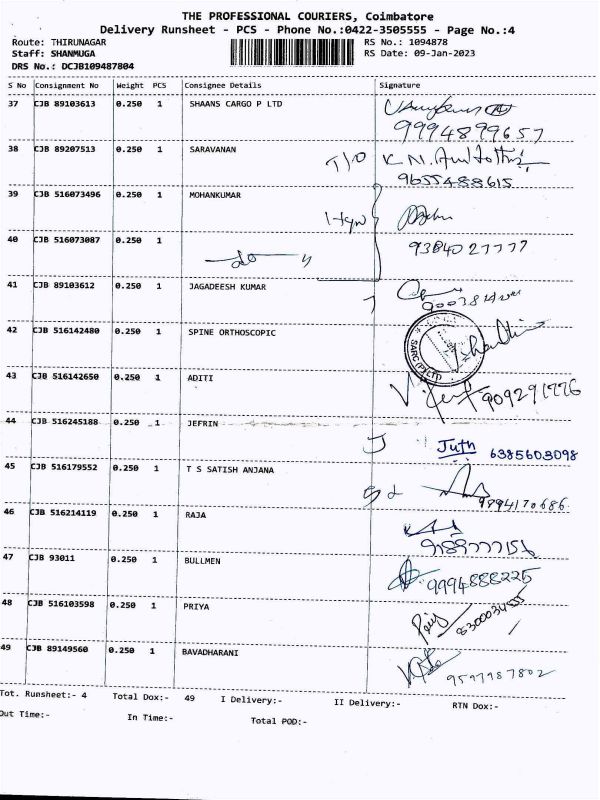 THE PROFESSIONAL COURIERS, Coimbatore
Delivery Runsheet - PCS - Phone No.:0422-3505555 - Page No.:4
Route: THIRUNAGAR RS No.: 1094878
Staff: SHANMUGA RS Date: 09-Jan-2023
DRS No.: DCJB109487804
S No Consignment No Weight PCS Consignee Details Signature
37 CJB 89103613 0.250 1 SHAANS CARGO P LTD
9994899657
38 CJB 89207513 0.250 1 SARAVANAN
9655488615
39 CJB 516073496 0.250 1 MOHANKUMAR
40 CJB 516073087 0.250 1
9384027777
41 CJB 89103612 0.250 1 JAGADEESH KUMAR
42 CJB 516142480 0.250 1 SPINE ORTHOSCOPIC
SARC (P) LTD
43 CJB 516142650 0.250 1 ADITI
909291776
44 CJB 516245188 0.250 1 JEFRIN
J 6385603098
45 CJB 516179552 0.250 1 T S SATISH ANJANA
9894170686
46 CJB 516214119 0.250 1 RAJA
9189777156
47 CJB 93011 0.250 1 BULLMEN
9994888225
48 CJB 516103598 0.250 1 PRIYA
Priy
49 CJB 89149560 0.250 1 BAVADHARANI
9597987802
Tot. Runsheet:- 4 Total Dox:- 49 I Delivery:- II Delivery:- RTN Dox:-
Out Time:- In Time:- Total POD:-